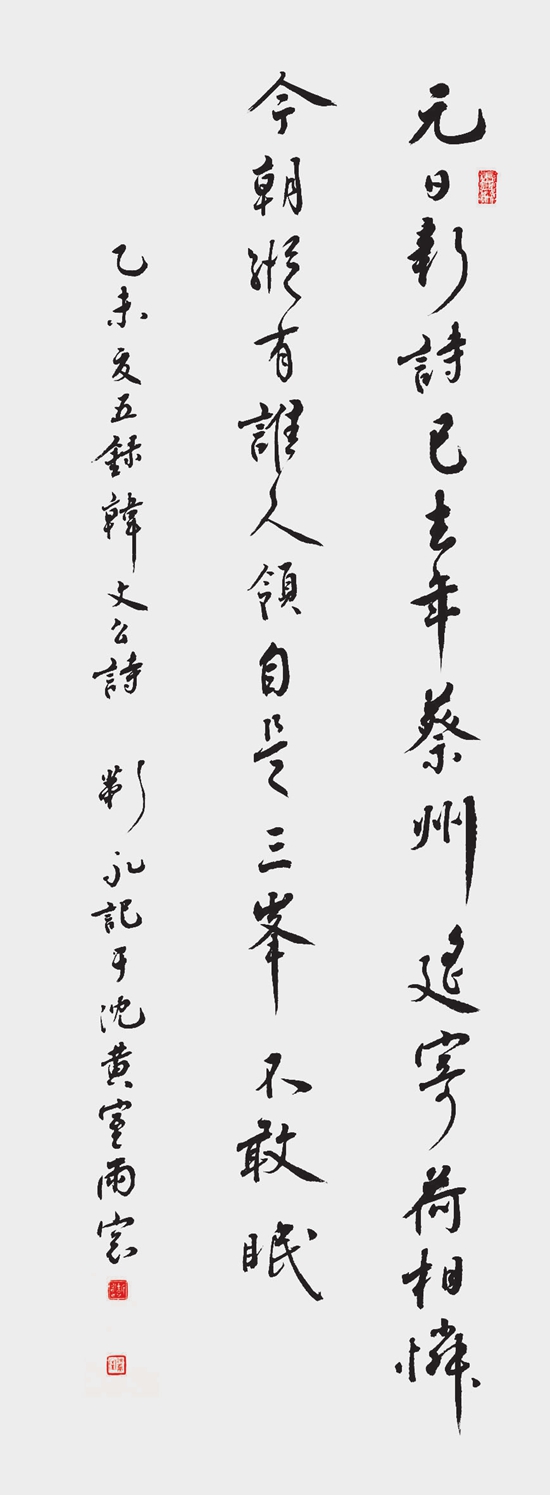 元日新詩已去年蔡州遥寄荷相憐
今朝縱有誰人領自是三峯不敢眠
乙未夏五録韓文公詩 靳永記于沈黄室雨窓